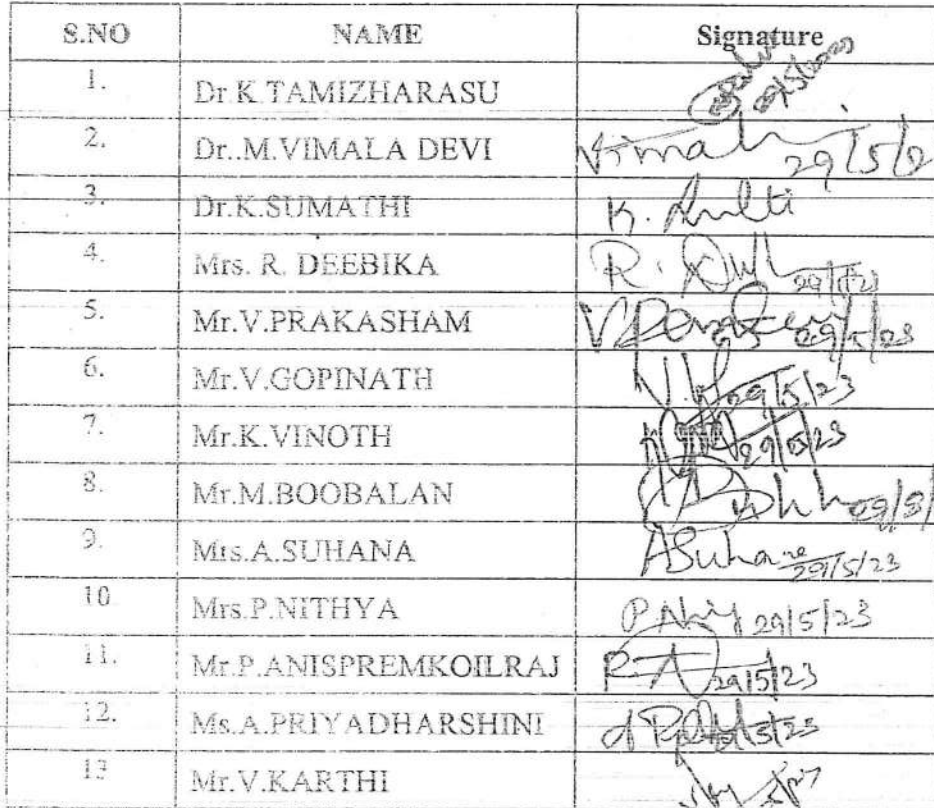 S.NO NAME Signature
1. Dr.K.TAMIZHARASU
2. Dr..M.VIMALA DEVI Vimal 29/5/2
3. Dr.K.SUMATHI K.
4. Mrs. R. DEEBIKA R.
5. Mr.V.PRAKASHAM 29/5/23
6. Mr.V.GOPINATH 29/5/23
7. Mr.K.VINOTH 29/05/23
8. Mr.M.BOOBALAN
9. Mrs.A.SUHANA ASuhana 29/5/23
10 Mrs.P.NITHYA 29/5/23
11. Mr.P.ANISPREMKOILRAJ 29/5/23
12. Ms.A.PRIYADHARSHINI
13 Mr.V.KARTHI